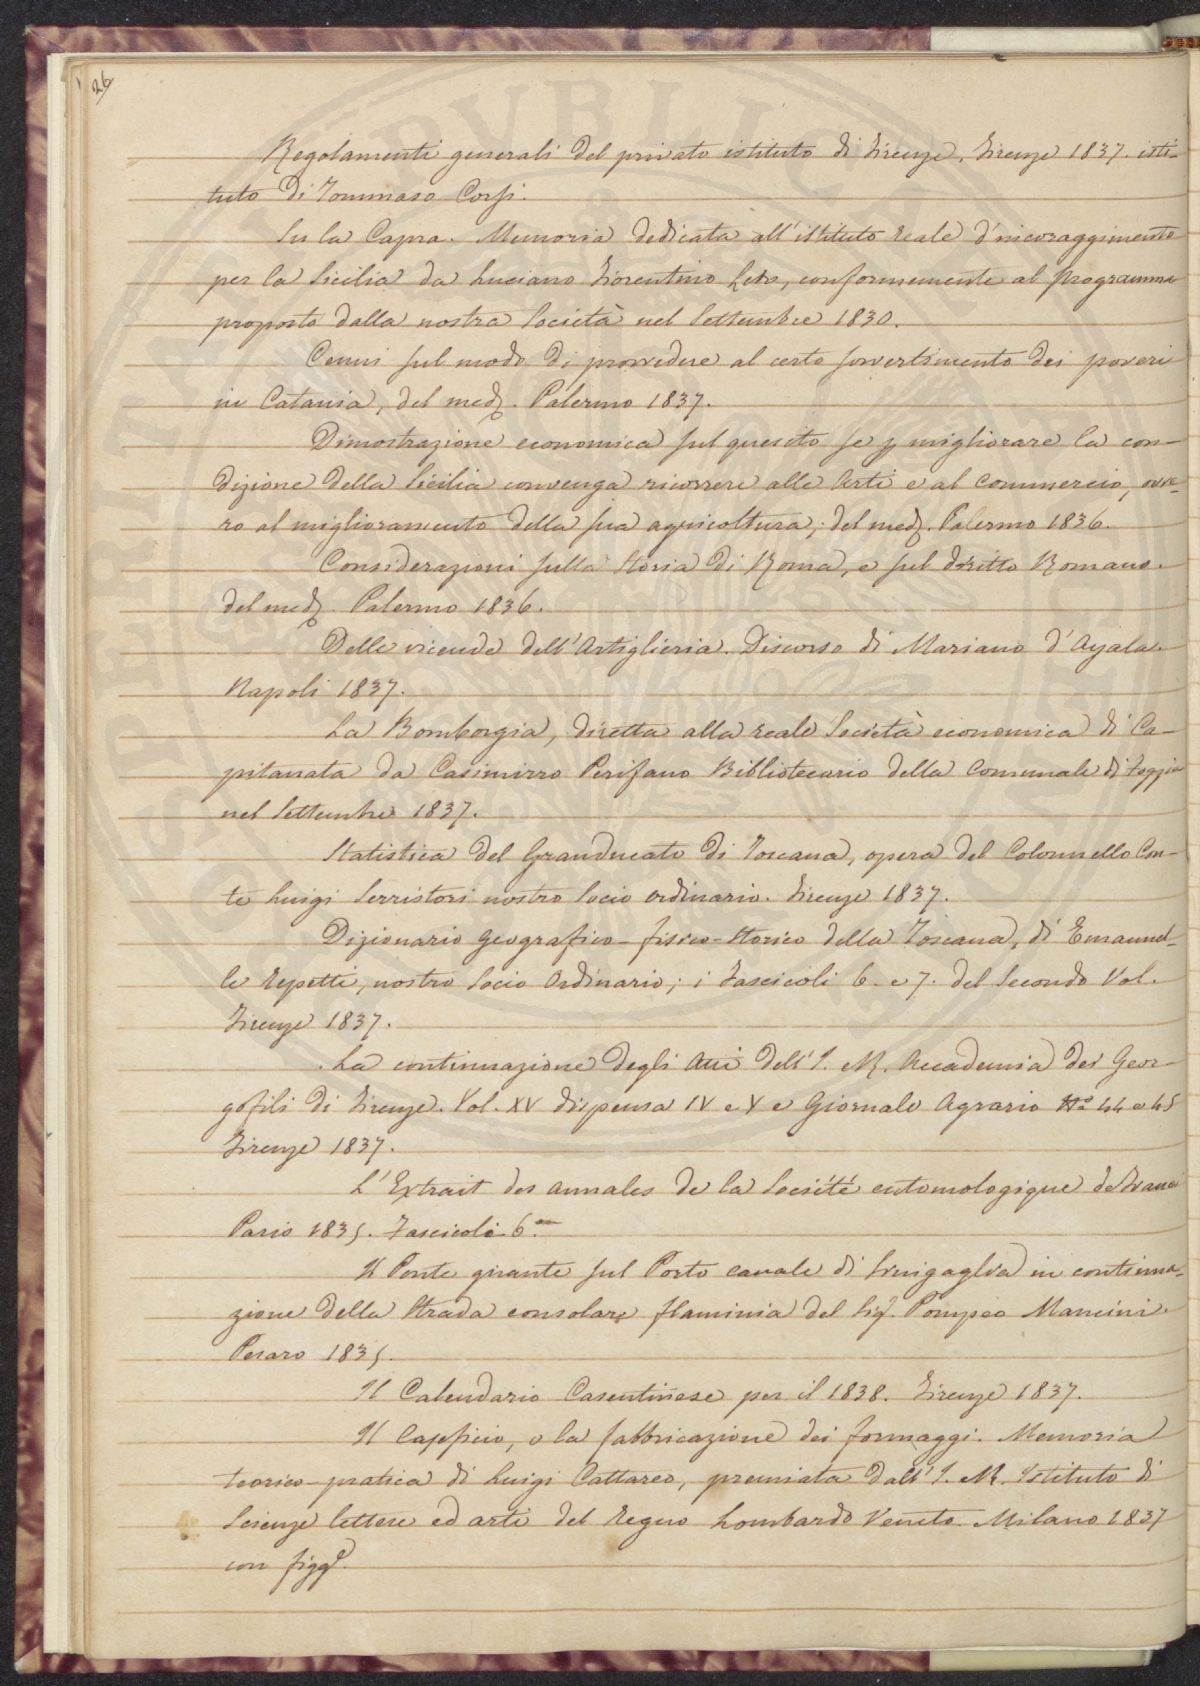 26
Regolamenti generali del privato istituto di Firenze, Firenze 1837. isti-
tuto di Tommaso Corsi.
Su la Capra. Memoria dedicata all'istituto reale d'incoraggimento
per la Sicilia da Luciano Fiorentino Leto, conformemente al programma
proposto dalla nostra Società nel Settembre 1830.
Cenni sul modo di provvedere al certo sovvertimento dei poveri
in Catania, del med. Palermo 1837.
Dimostrazione economica sul quesito se p migliorare la con-
dizione della Sicilia convenga ricorrere alle Arti e al Commercio, ovve-
ro al miglioramento della sua agricoltura, del med. Palermo 1836.
Considerazioni sulla Storia di Roma, e sul dritto Romano.
del med. Palermo 1836.
Delle vicende dell'Artiglieria. Discorso di Mariano d'Ayala.
Napoli 1837.
La Bomborgia, diretta alla reale Società economica di Ca-
pitanata da Casimirro Perifano Bibliotecario della Comunale di Foggia
nel Settembre 1837.
Statistica del Granducato di Toscana, opera del Colonnello Con-
te Luigi Serristori nostro Socio ordinario. Firenze 1837.
Dizionario Geografico-fisico-storico della Toscana, di Emanuel-
le Repetti, nostro Socio Ordinario; i Fascicoli 6. e 7. del Secondo Vol.
Firenze 1837.
La continuazione degli Atti dell'I. R. Accademia dei Geor-
gofili di Firenze. Vol. XV dispensa IV e V e Giornale Agrario Nº 44 e 45
Firenze 1837.
L'Extrait des annales de la Société entomologique de Franci
Paris 1835. Fascicoli 6.
Il Ponte girante sul Porto canale di Sinigaglia in continua-
zione della Strada consolare flaminia del Sig. Pompeo Mancini.
Pesaro 1835.
Il Calendario Casentinese per il 1838. Firenze 1837.
Il Cappicio, o la fabbricazione dei formaggi. Memoria
teorico-pratica di Luigi Cattareo, premiata dall'I. R. Istituto di
Scienze lettere ed arti del Regno Lombardo Veneto Milano 1837
con figg.